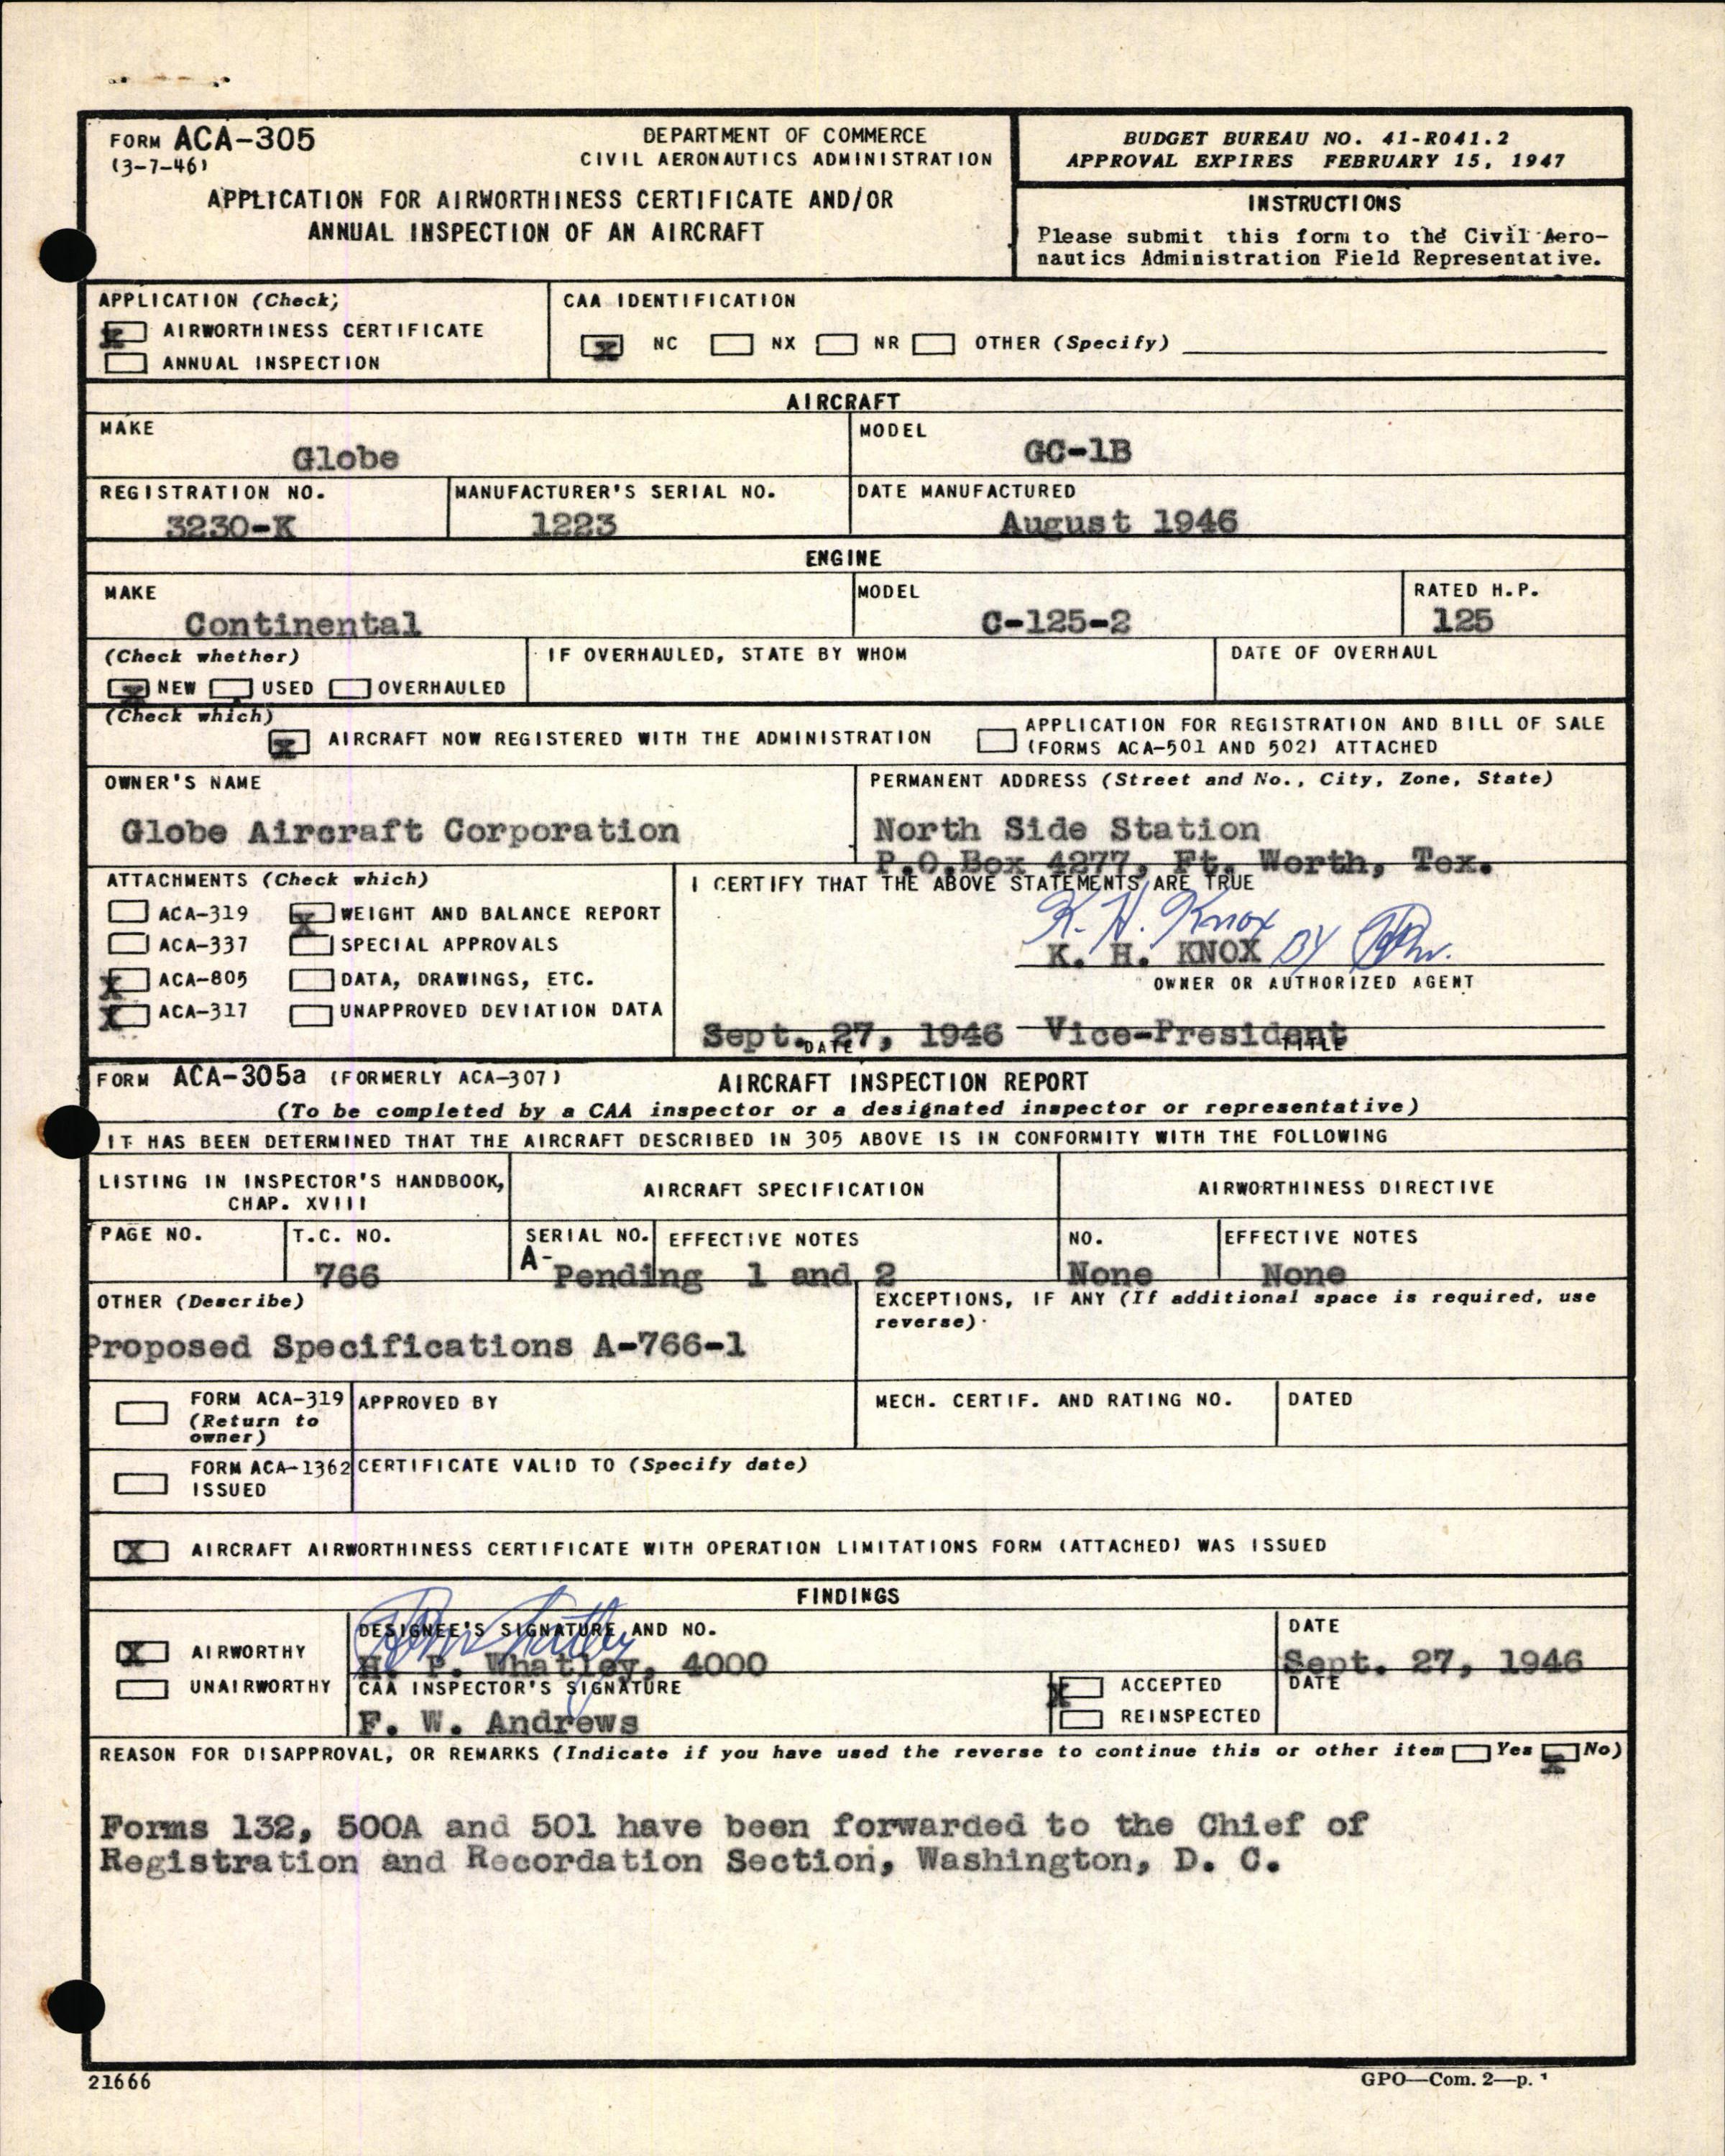 FORM ACA-305
(3-7-46)
DEPARTMENT OF COMMERCE
CIVIL AERONAUTICS ADMINISTRATION
APPLICATION FOR AIRWORTHINESS CERTIFICATE AND/OR
ANNUAL INSPECTION OF AN AIRCRAFT
BUDGET BUREAU NO. 41-R041.2
APPROVAL EXPIRES FEBRUARY 15, 1947
INSTRUCTIONS
Please submit this form to the Civil Aero-
nautics Administration Field Representative.
APPLICATION (Check)
X AIRWORTHINESS CERTIFICATE
ANNUAL INSPECTION
CAA IDENTIFICATION
X NC NX NR OTHER (Specify)
AIRCRAFT
MAKE
Globe
MODEL
GC-1B
REGISTRATION NO.
3230-K
MANUFACTURER'S SERIAL NO.
1223
DATE MANUFACTURED
August 1946
ENGINE
MAKE
Continental
MODEL
C-125-2
RATED H.P.
125
(Check whether)
X NEW USED OVERHAULED
IF OVERHAULED, STATE BY WHOM
DATE OF OVERHAUL
(Check which)
X AIRCRAFT NOW REGISTERED WITH THE ADMINISTRATION
APPLICATION FOR REGISTRATION AND BILL OF SALE
(FORMS ACA-501 AND 502) ATTACHED
OWNER'S NAME
Globe Aircraft Corporation
PERMANENT ADDRESS (Street and No., City, Zone, State)
North Side Station
P.O.Box 4277, Ft. Worth, Tex.
ATTACHMENTS (Check which)
ACA-319 X WEIGHT AND BALANCE REPORT
ACA-337 SPECIAL APPROVALS
X ACA-805 DATA, DRAWINGS, ETC.
X ACA-317 UNAPPROVED DEVIATION DATA
I CERTIFY THAT THE ABOVE STATEMENTS ARE TRUE
K. H. Knox
K. H. KNOX BY
OWNER OR AUTHORIZED AGENT
Sept. 27, 1946 Vice-President
DATE TITLE
FORM ACA-305a (FORMERLY ACA-307) AIRCRAFT INSPECTION REPORT
(To be completed by a CAA inspector or a designated inspector or representative)
IT HAS BEEN DETERMINED THAT THE AIRCRAFT DESCRIBED IN 305 ABOVE IS IN CONFORMITY WITH THE FOLLOWING
LISTING IN INSPECTOR'S HANDBOOK,
CHAP. XVIII
AIRCRAFT SPECIFICATION
AIRWORTHINESS DIRECTIVE
PAGE NO.
T.C. NO.
766
SERIAL NO.
A-Pending
EFFECTIVE NOTES
1 and 2
NO.
None
EFFECTIVE NOTES
None
OTHER (Describe)
Proposed Specifications A-766-1
EXCEPTIONS, IF ANY (If additional space is required, use
reverse).
FORM ACA-319
(Return to
owner)
APPROVED BY
MECH. CERTIF. AND RATING NO.
DATED
FORM ACA-1362
ISSUED
CERTIFICATE VALID TO (Specify date)
X AIRCRAFT AIRWORTHINESS CERTIFICATE WITH OPERATION LIMITATIONS FORM (ATTACHED) WAS ISSUED
FINDINGS
X AIRWORTHY
UNAIRWORTHY
DESIGNEE'S SIGNATURE AND NO.
H. P. Whatley, 4000
DATE
Sept. 27, 1946
CAA INSPECTOR'S SIGNATURE
F. W. Andrews
X ACCEPTED
REINSPECTED
DATE
REASON FOR DISAPPROVAL, OR REMARKS (Indicate if you have used the reverse to continue this or other item Yes X No)
Forms 132, 500A and 501 have been forwarded to the Chief of
Registration and Recordation Section, Washington, D. C.
21666
GPO—Com. 2—p.